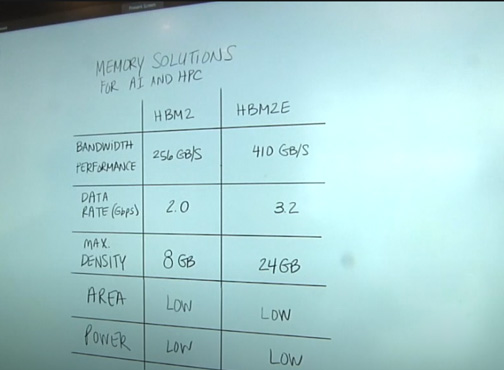 MEMORY SOLUTIONS
FOR AI AND HPC
HBM2 HBM2E
BANDWIDTH PERFORMANCE 256 GB/S 410 GB/S
DATA RATE (Gbps) 2.0 3.2
MAX. DENSITY 8 GB 24 GB
AREA LOW LOW
POWER LOW LOW